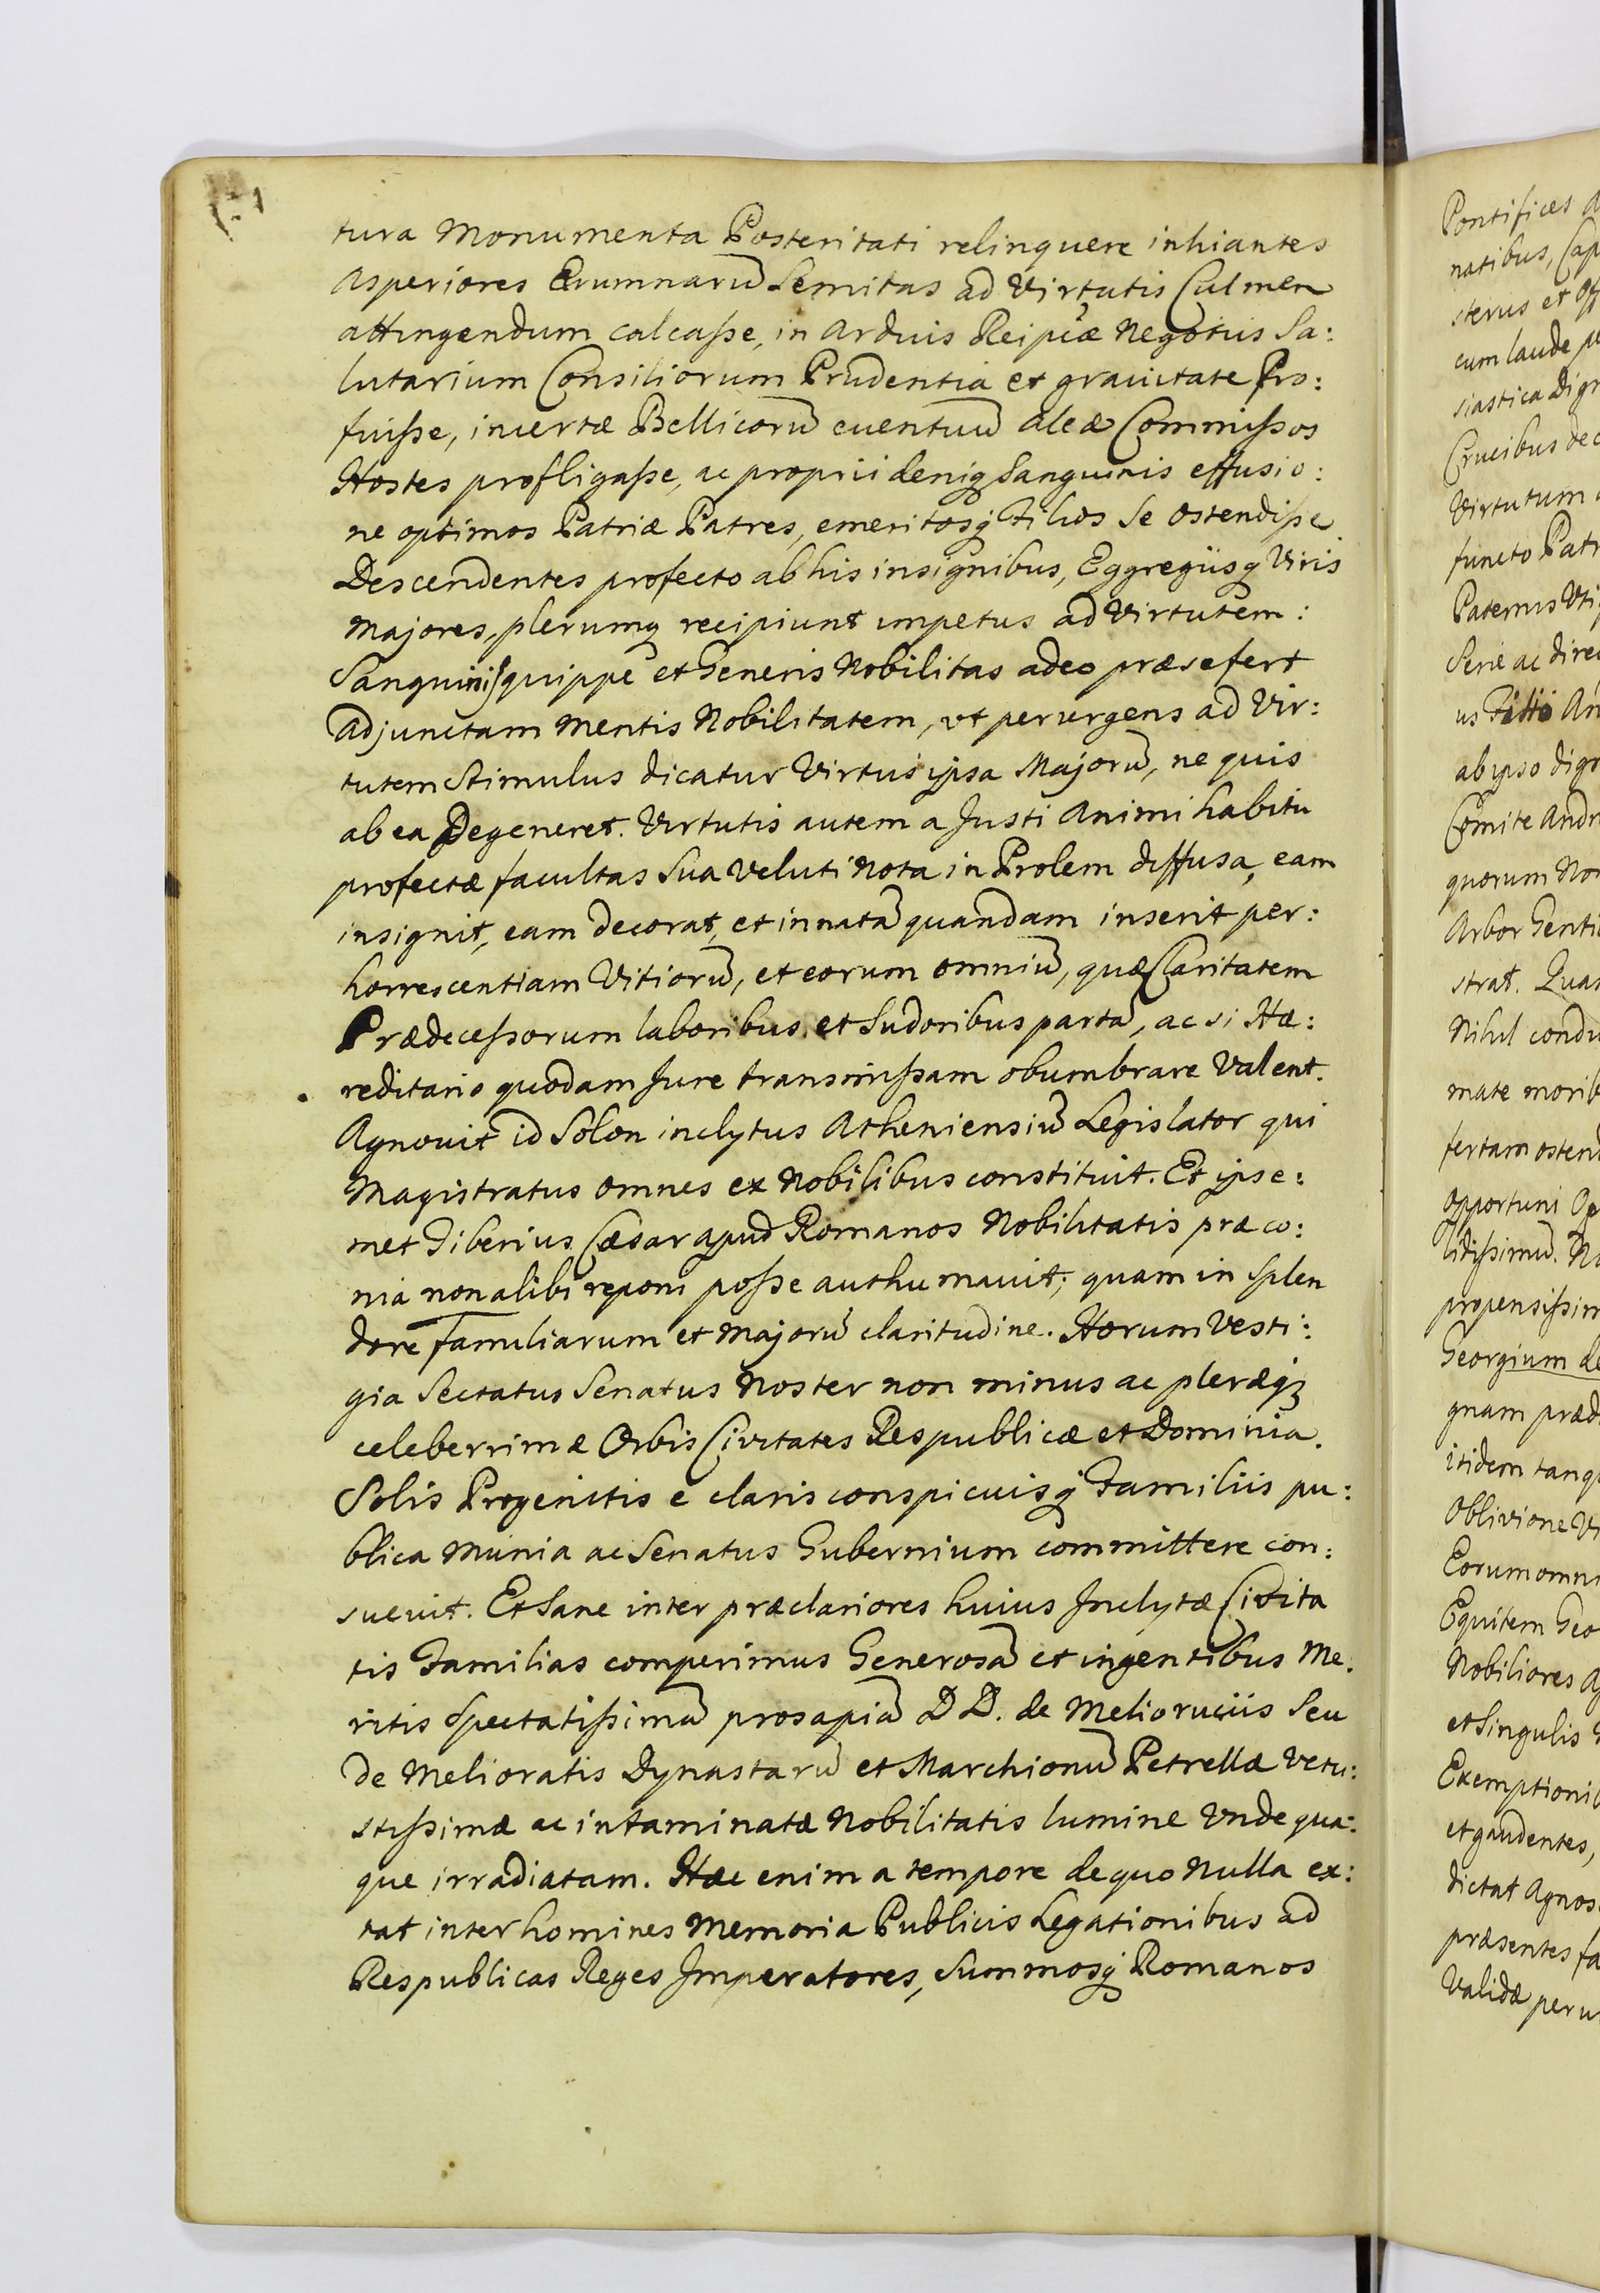 tura Monumenta Posteritati relinquere inhiantes
asperiores Erumnarū Semitas ad Virtutis Culmen
attingendum calcaſse, in arduis Reipcæ Negotiis Sa:
lutarium Consiliorum Prudentia et grauitate Pro:
fuiſse, incertæ Bellicorū euentuū aleæ Commiſsos
Hostes profligaſse, ac proprii deniq Sanguinis effusio:
ne optimos Patriæ Patres, emeritosq Filios Se ostendiſse
Descendentes profecto ab his insignibus, Eggregiisq Viris
Majores, plerumq recipiunt impetus ad Virtutem:
Sanguinis quippe et Generis Nobilitas adeo præsefert
adjunctam Mentis Nobilitatem, vt perurgens ad Vir:
tutem Stimulus dicatur Virtus ipsa Majorū, ne quis
ab ea Degeneret. Virtutis autem a Justi Animi habitu
profectæ facultas Sua Veluti Nota in Prolem diffusa, eam
insignit, eam decorat, et innatā quandam inserit per:
horrescentiam Vitiorū, et eorum omniū, quæ Claritatem
Prædeceſsorum laboribus et Sudoribus partā, ac si Hæ:
reditario quodam Jure transmiſsam obumbrare Valent.
Agnouit id Solon inclytus Atheniensiū Legislator qui
Magistratus omnes ex Nobilibus constituit. Et ipse:
met Tiberius Cæsar apud Romanos Nobilitatis præco:
nia non alibi reponi poſse authumauit, quam in Splen
dore familiarum et Majorū claritudine. Horum Vesti:
gia Sectatus Senatus Noster non minus ac pleræq
celeberrimæ Orbis Ciuitates Respublicæ et Dominia.
Solis Progenitis e claris conspicuisq Familiis pu:
blica Munia ac Senatus Gubernium committere con:
sueuit. Et Sane inter præclariores huius Inclytæ Civita
tis Familias comperimus Generosā et ingentibus Me.
ritis Spectatiſsimā prosapiā DD. de Melioruciis Seu
de Melioratis Dynastarū et Marchionū Petrellæ Vetu:
stiſsimæ ac intaminatæ Nobilitatis lumine Vndequa:
que irradiatam. Hæc enim a tempore de quo Nulla ex:
tat inter homines Memoria Publicis Legationibus ad
Respublicas Reges Imperatores, Summosq Romanos
Pontifices
natibus, Cap
sterus et
cum laude
siastica Dig
Crucibus dec
Virtutum
functo Patr
Paternis
Serie ac dire
us An
ab ipso dig
Comite Andr
quorum No
Arbor Genti
strat. Quas
Nihil condu
mate morib
fertam ostend
opportuni
lidiſsimū. No
propensiſsim
Georgium de
gnam præd
itidem tanq
Oblivione
Eorum omn
Equitem Geo
Nobiliores
et Singulis
Exemptionib
et gaudentes,
dictat Agnos
præsentes fa
Validæ per